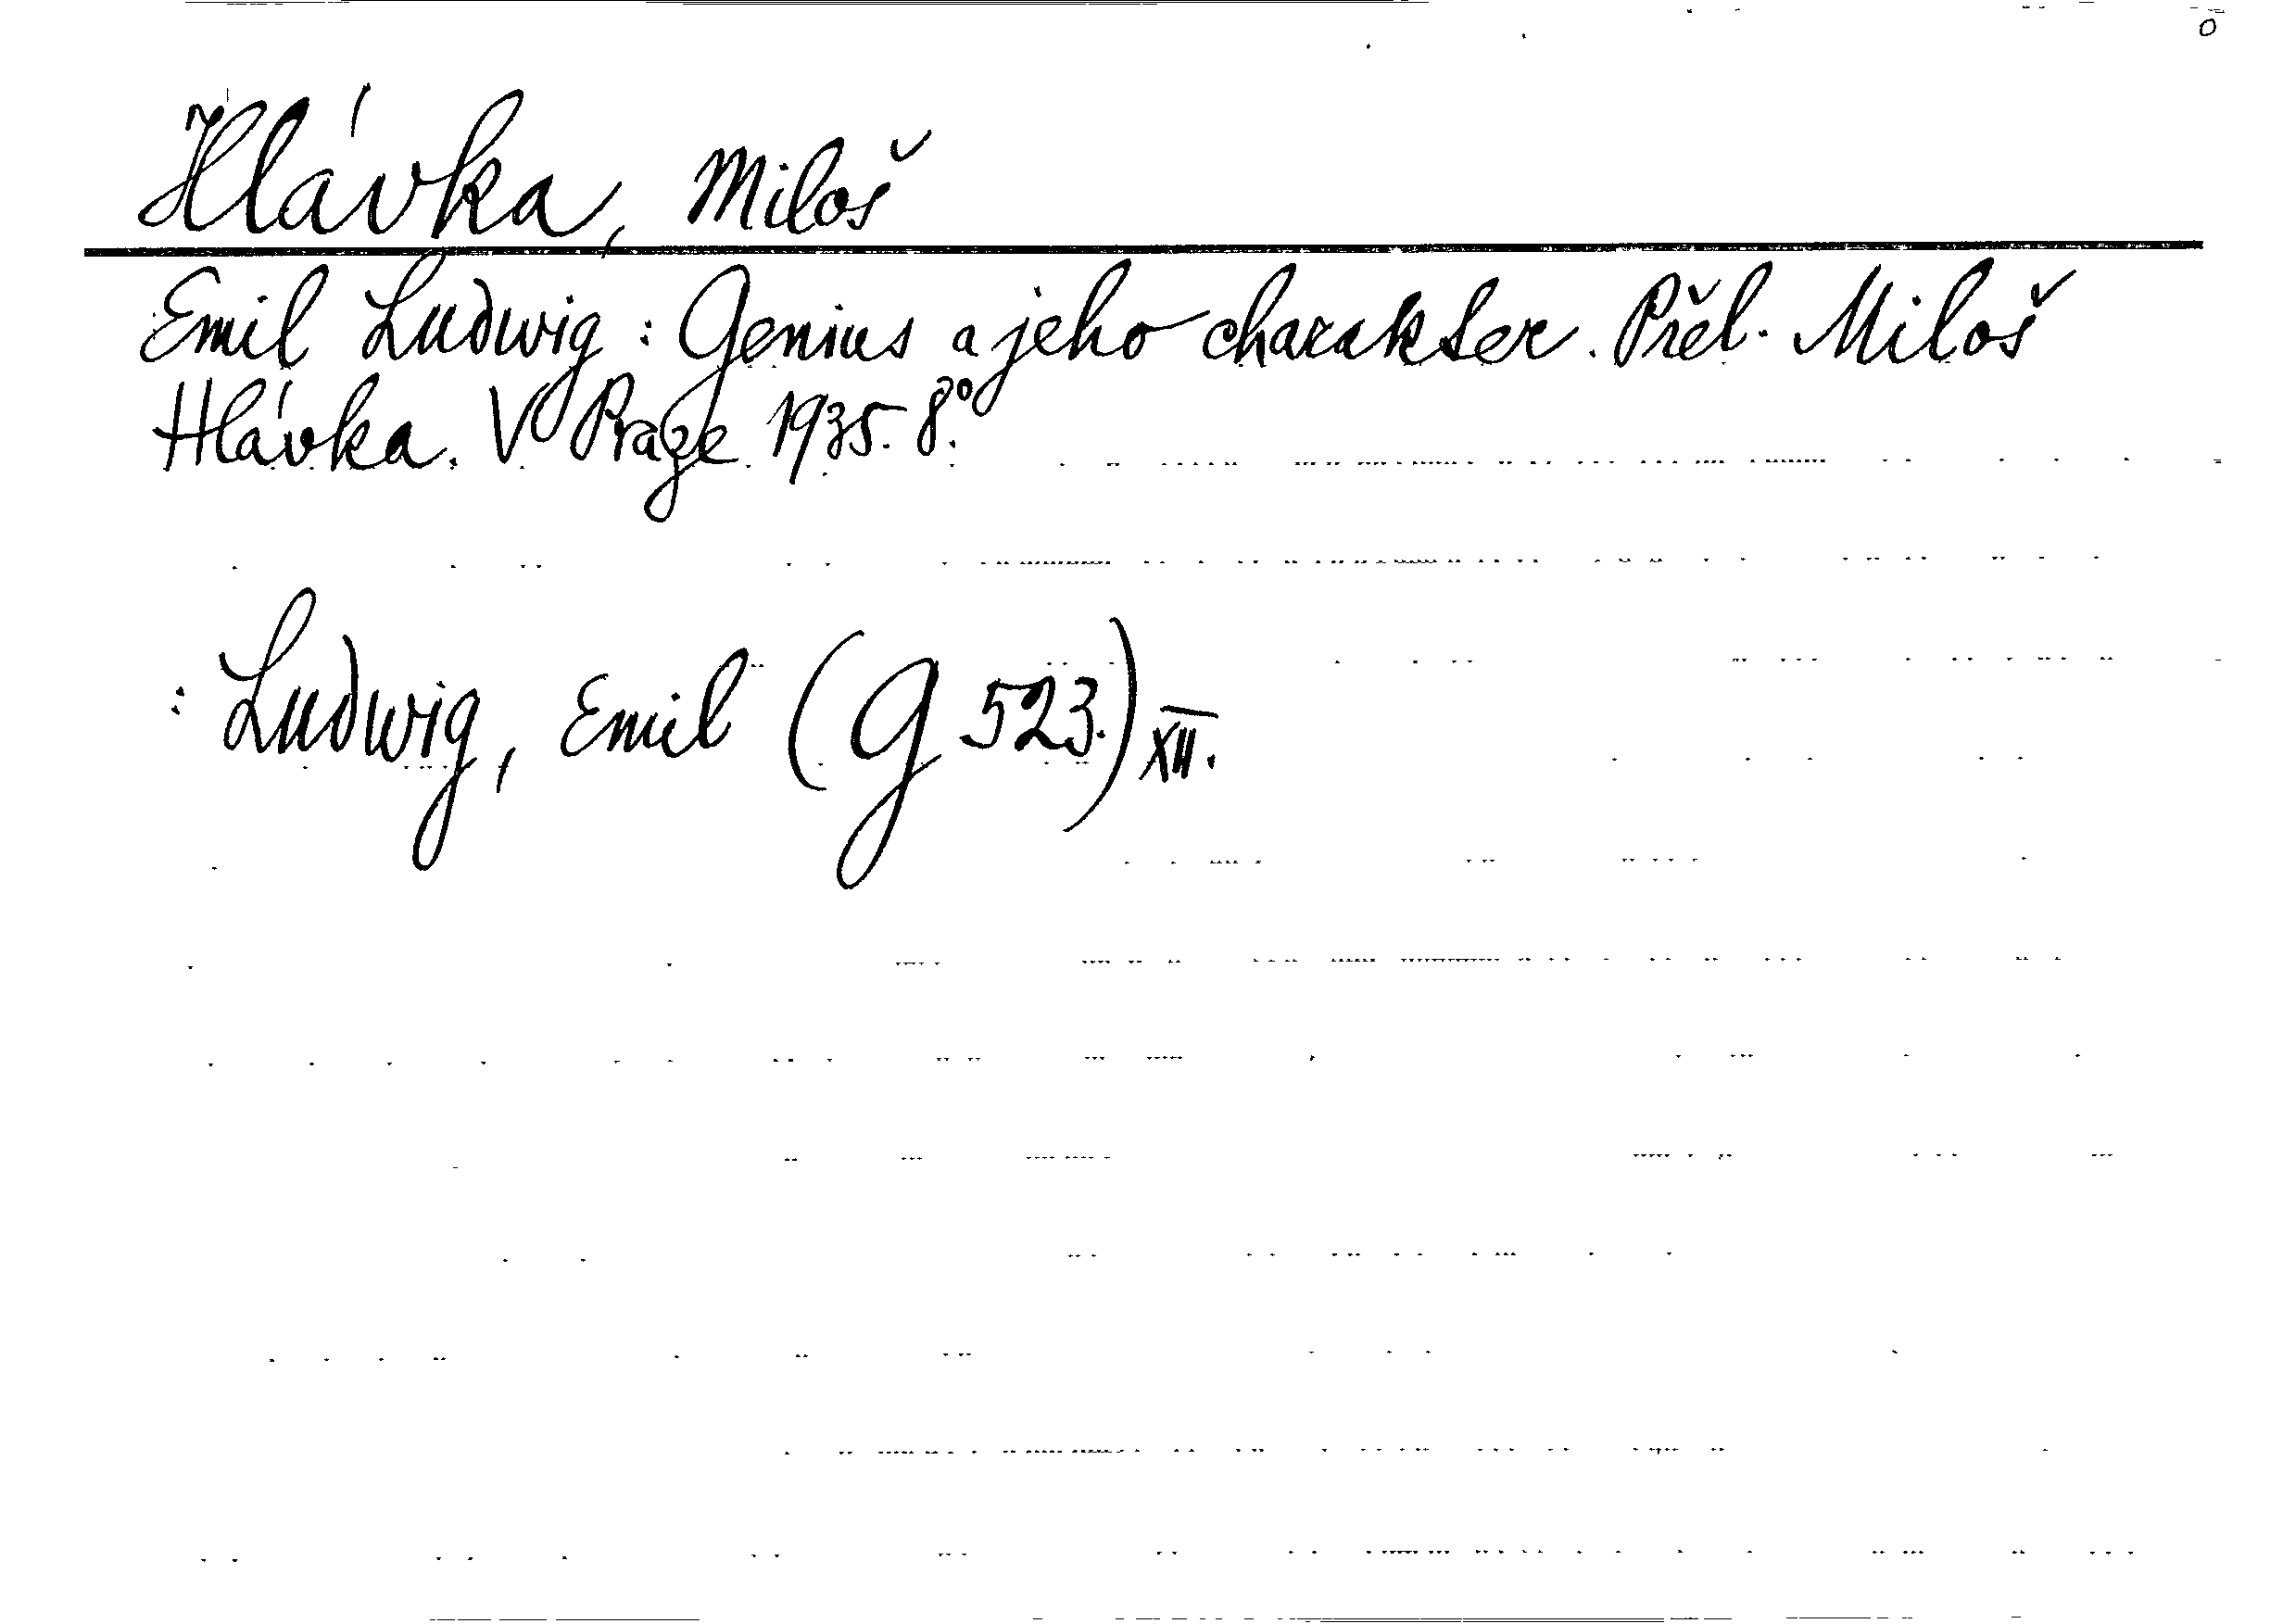 Hlávka, Miloš
Emil Ludwig: Genius a jeho charakter. Přel. Miloš
Hlávka. V Praze 1935. 8.°
: Ludwig, Emil (G 523.) XII.